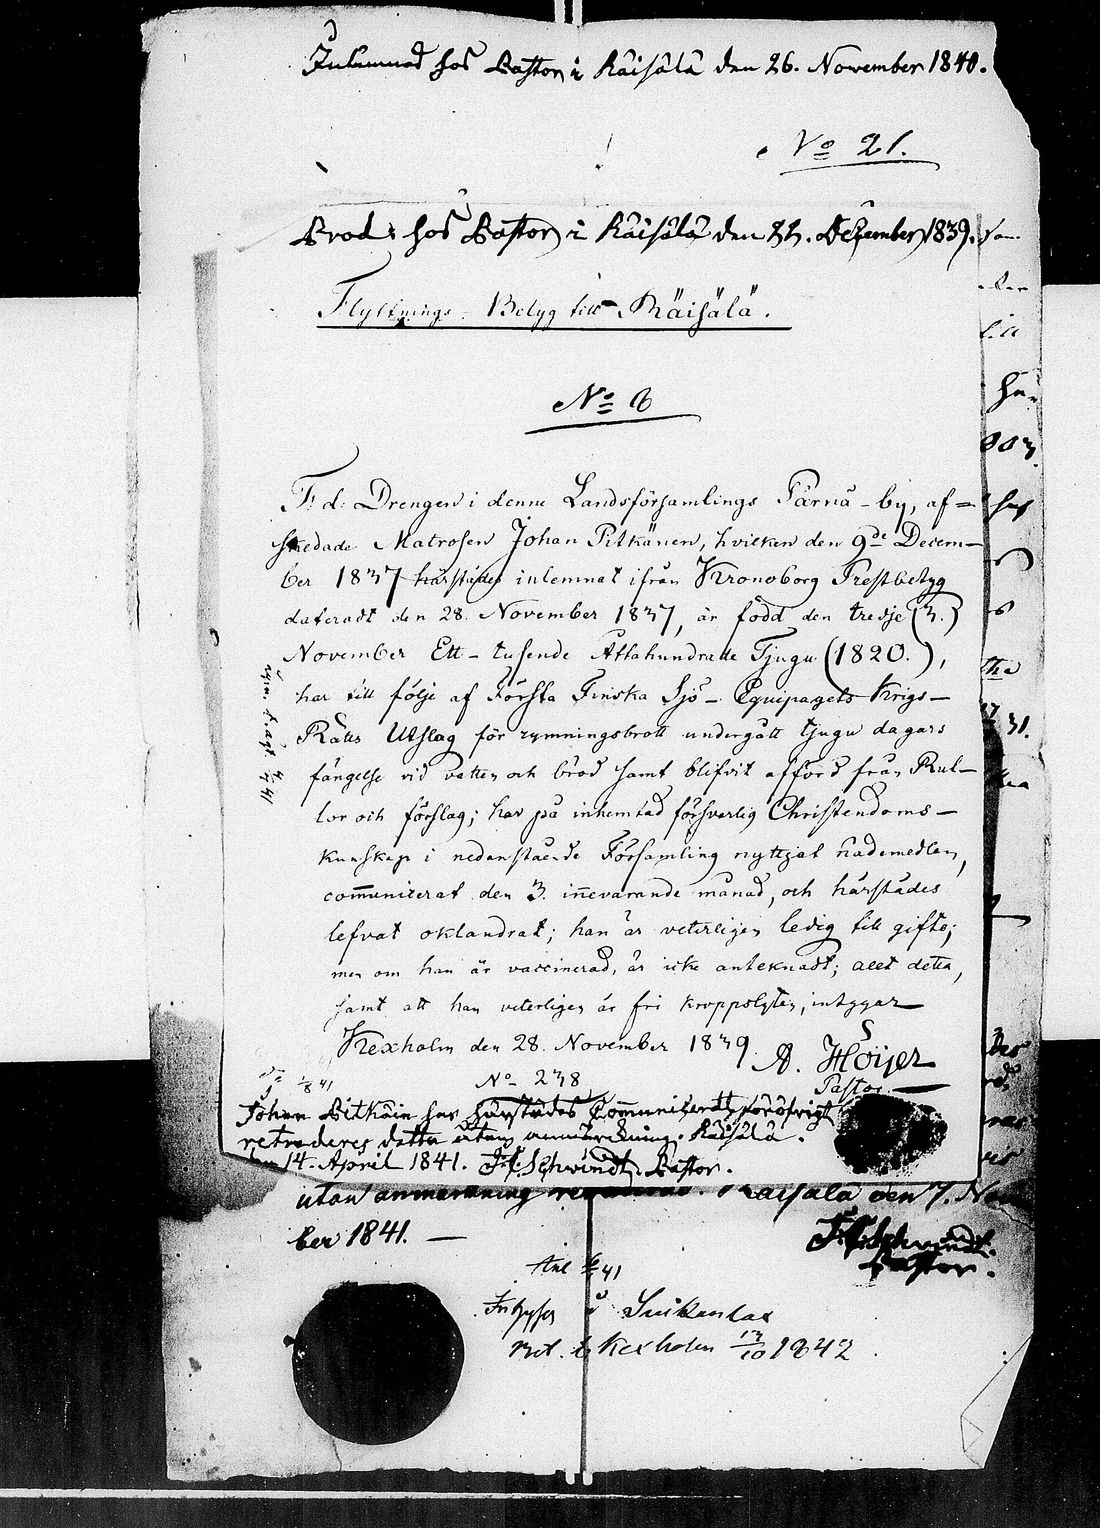 Inlemnad hos Pastor i Räisälä den 26. November 1840.
No 21.
Prod: hos Pastor i Räisälä den 22. December 1839.
Flyttnings-Betyg till Räisälä.
No 6
F: d: Drengen i denne Landsförsamlings Tärnä-by, af=
skedade Matrosen Johan Pitkänen, hvilken den 9de Decem-
ber 1837 härstädes inlemnat ifrån Kronoborg Prestbetyg
dateradt den 28. November 1837, är född den tredje (3.)
November Ett-tusende Åttahundrade Tjugu (1820.),
har till följe af Första Finska Sjö-Equipagets Krigs-
Rätts Utslag för rymningsbrott undergått tjugu dagars
fängelse vid vatten och bröd samt blifvit afförd från Rul-
lor och förslag; har på inhemtad försvarlig Christendoms-
kunskap i nedanstående Församling nyttjat nådemedlen,
com̄unicerat den 3. in̄evarande månad, och härstädes
lefvat oklandrat; han är veterligen ledig till gifte;
men om han är vaccinerad, är icke anteknadt; allt detta,
samt att han veterligen är fri kroppslyten, intygar
Kexholm den 28. November 1839. A. Höijer
Pastor.
No 238
Johan Pitkäin har härstädes Communicerat, föröfrigt
retraderes detta utan anmärkning. Räisälä.
den 14. April 1841. Schvindt. Pastor.
utan anmärkning Räisälä den 7. Novem
ber 1841.
Schvindt.
Pastor.
41
Suikanlax
Kexholm 13/10 1842